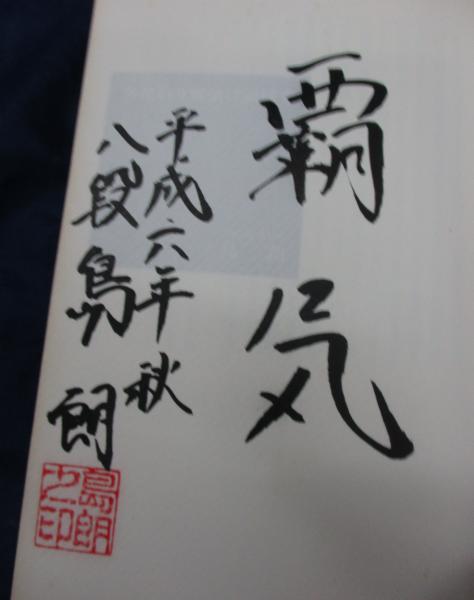 覇気
平成六年秋
八段島朗
島朗之印